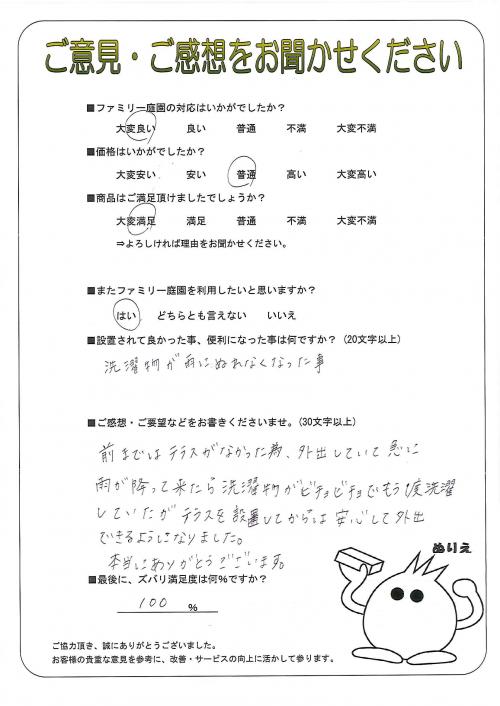 ご意見・ご感想をお聞かせください
■ファミリー庭園の対応はいかがでしたか？
大変良い 良い 普通 不満 大変不満
■価格はいかがでしたか？
大変安い 安い 普通 高い 大変高い
■商品はご満足頂けましたでしょうか？
大変満足 満足 普通 不満 大変不満
⇒よろしければ理由をお聞かせください。
■またファミリー庭園を利用したいと思いますか？
はい どちらとも言えない いいえ
■設置されて良かった事、便利になった事は何ですか？（20文字以上）
洗濯物が雨にぬれなくなった事
■ご感想・ご要望などをお書きくださいませ。（30文字以上）
前まではテラスがなかった為、外出していて急に
雨が降って来たら洗濯物がビチョビチョでもう1度洗濯
していたがテラスを設置してからは安心して外出
できるようになりました。
本当にありがとうございます。
ぬりえ
■最後に、ズバリ満足度は何％ですか？
100 ％
ご協力頂き、誠にありがとうございました。
お客様の貴重な意見を参考に、改善・サービスの向上に活かして参ります。